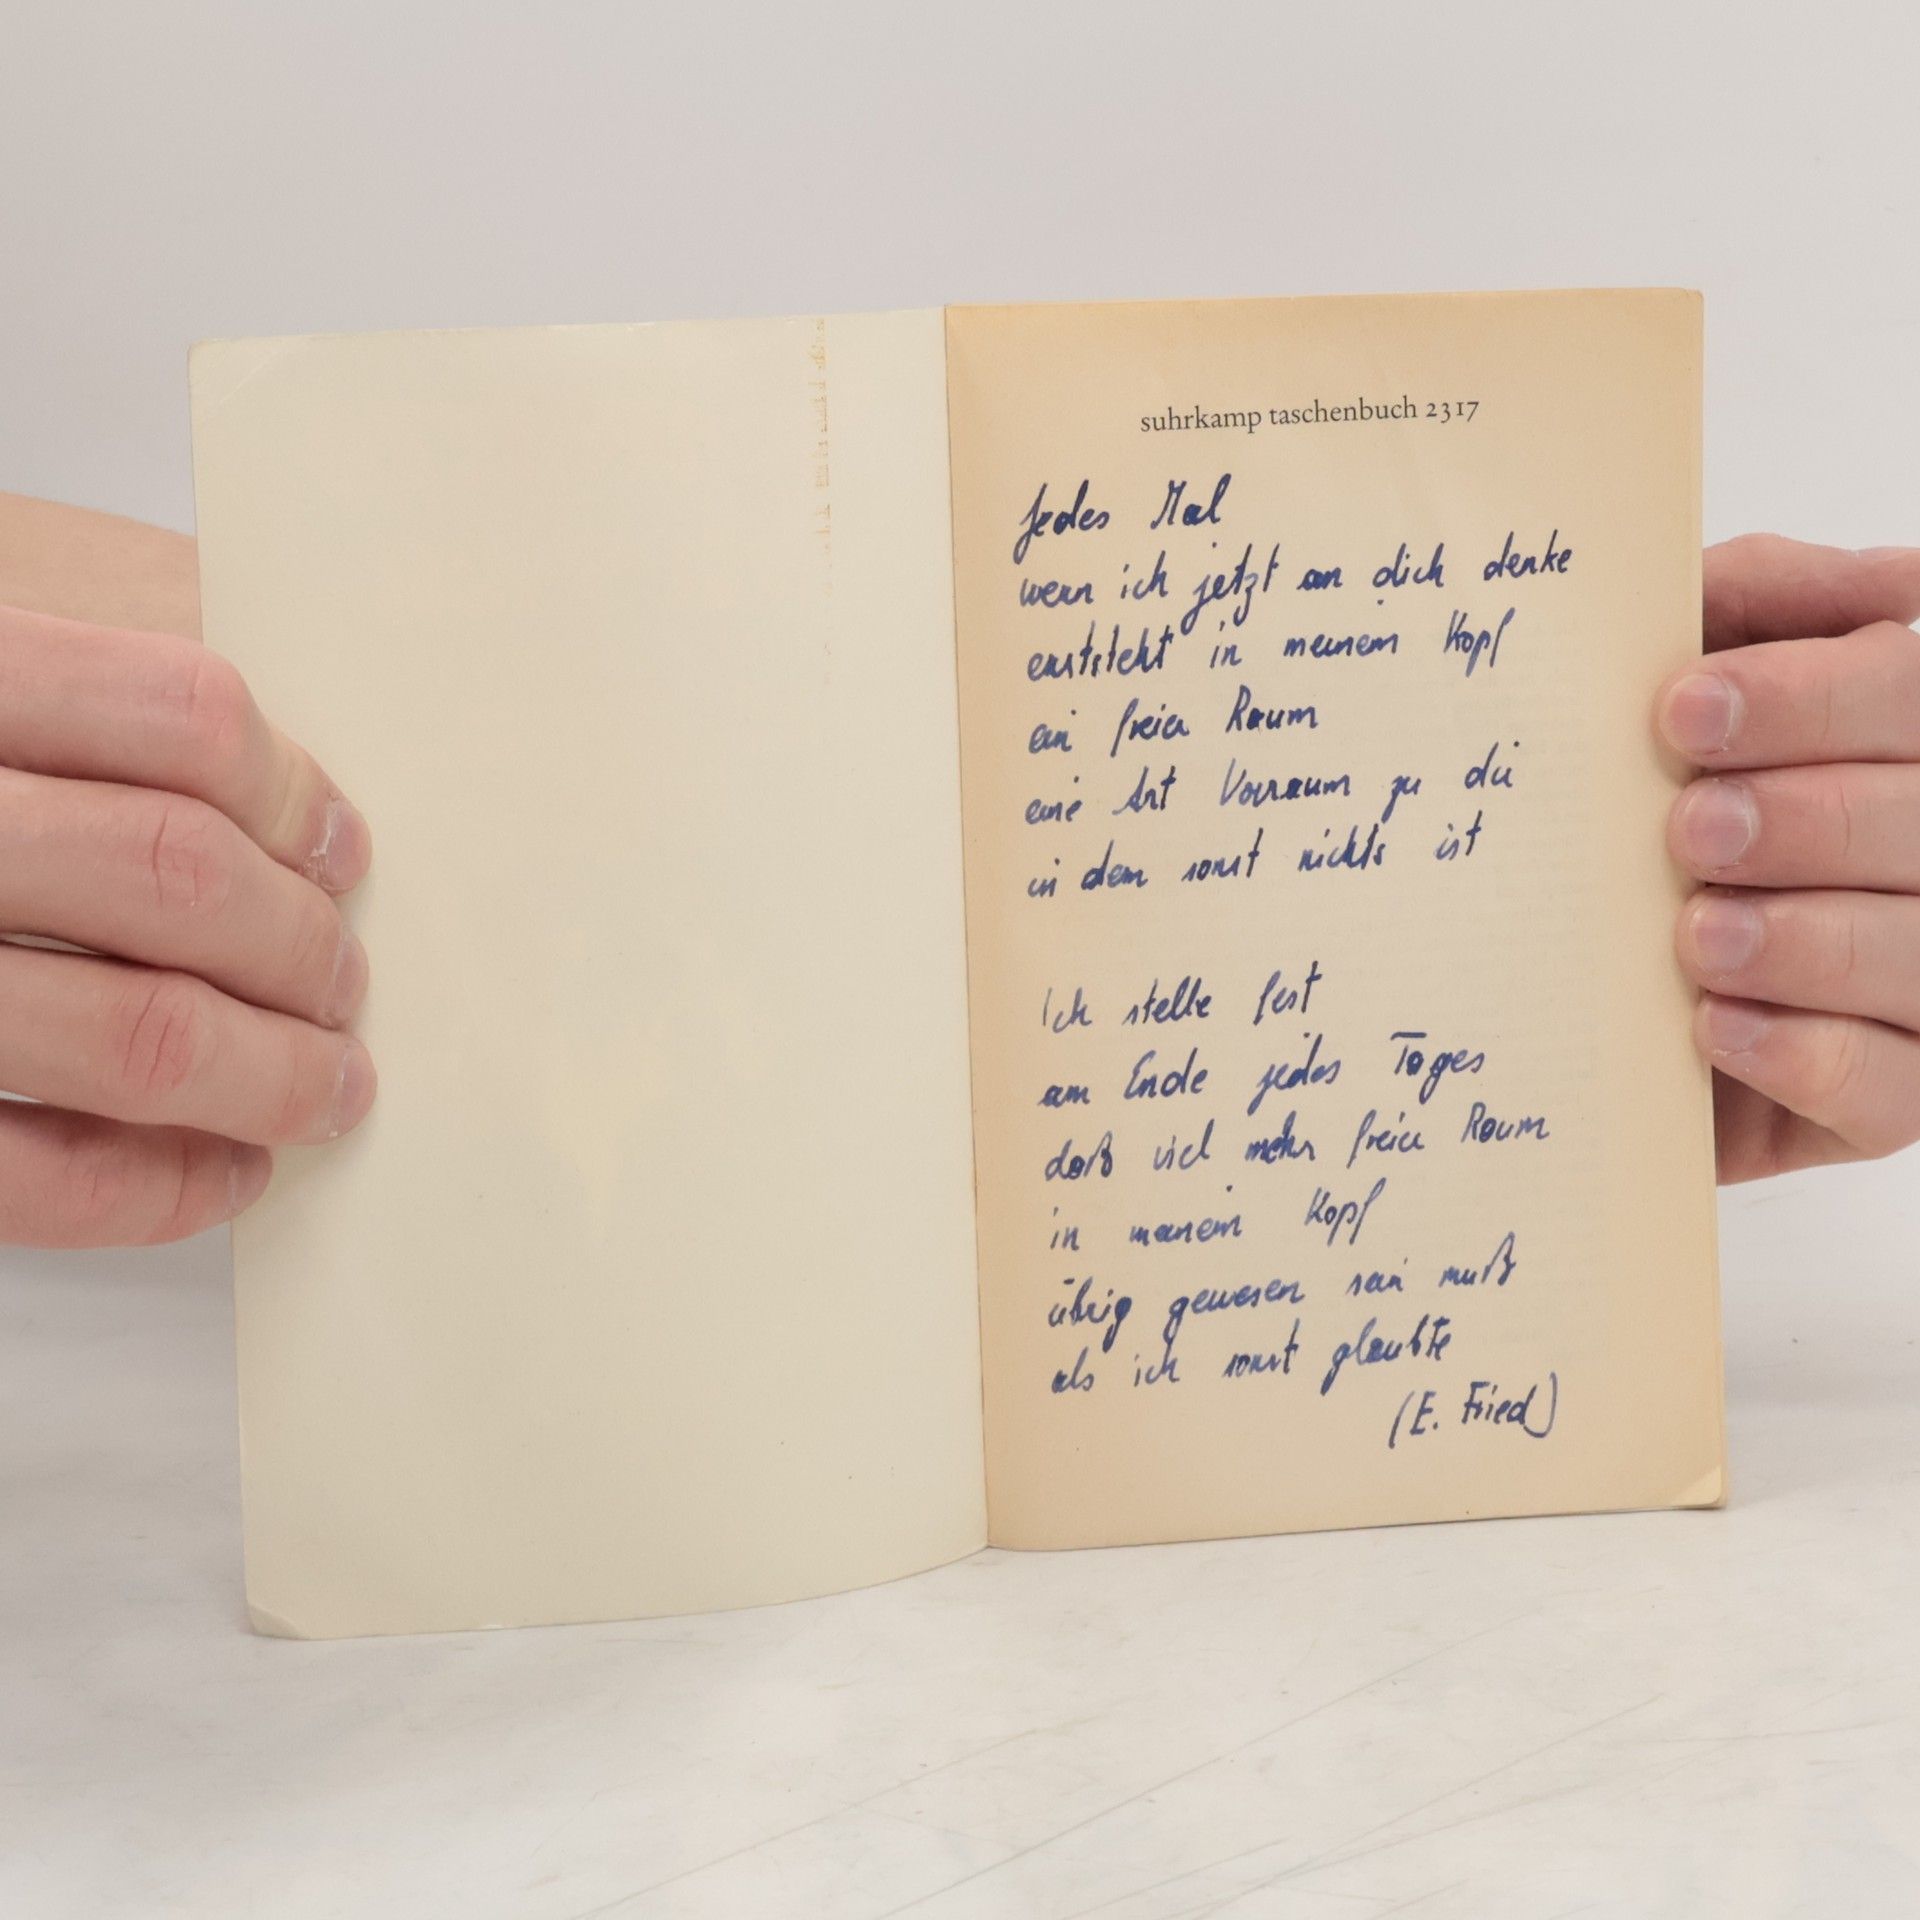 suhrkamp taschenbuch 2317
Jedes Mal
wenn ich jetzt an dich denke
entsteht in meinem Kopf
ein freier Raum
eine Art Vorraum zu dir
in dem sonst nichts ist
Ich stelle fest
am Ende jedes Tages
daß viel mehr freier Raum
in meinem Kopf
übrig gewesen sein muß
als ich sonst glaubte
(E. Fried)